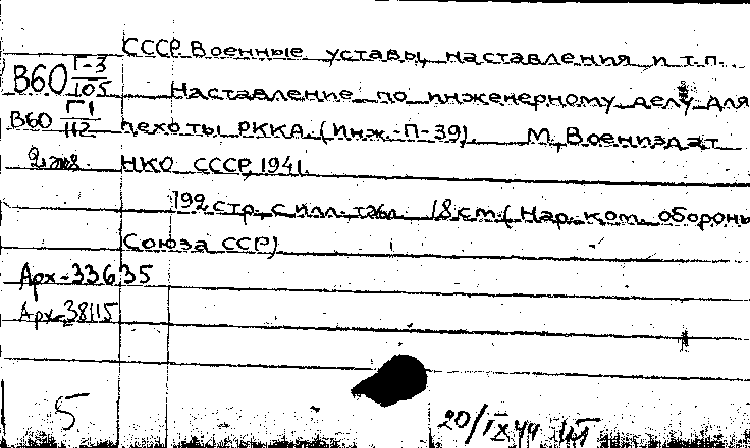 СССР. Военные уставы, наставления и т.п.
В60 Г-3/105
Наставление по инженерному делу для
В60 Г1/112
пехоты РККА. (Инж.-П-39). М., Воениздат
2 экз.
НКО СССР, 1941.
192 стр. с илл. 18 см. (Нар. ком. обороны
Союза ССР)
Арх-33635
Арх-38115
5
20/IX 44